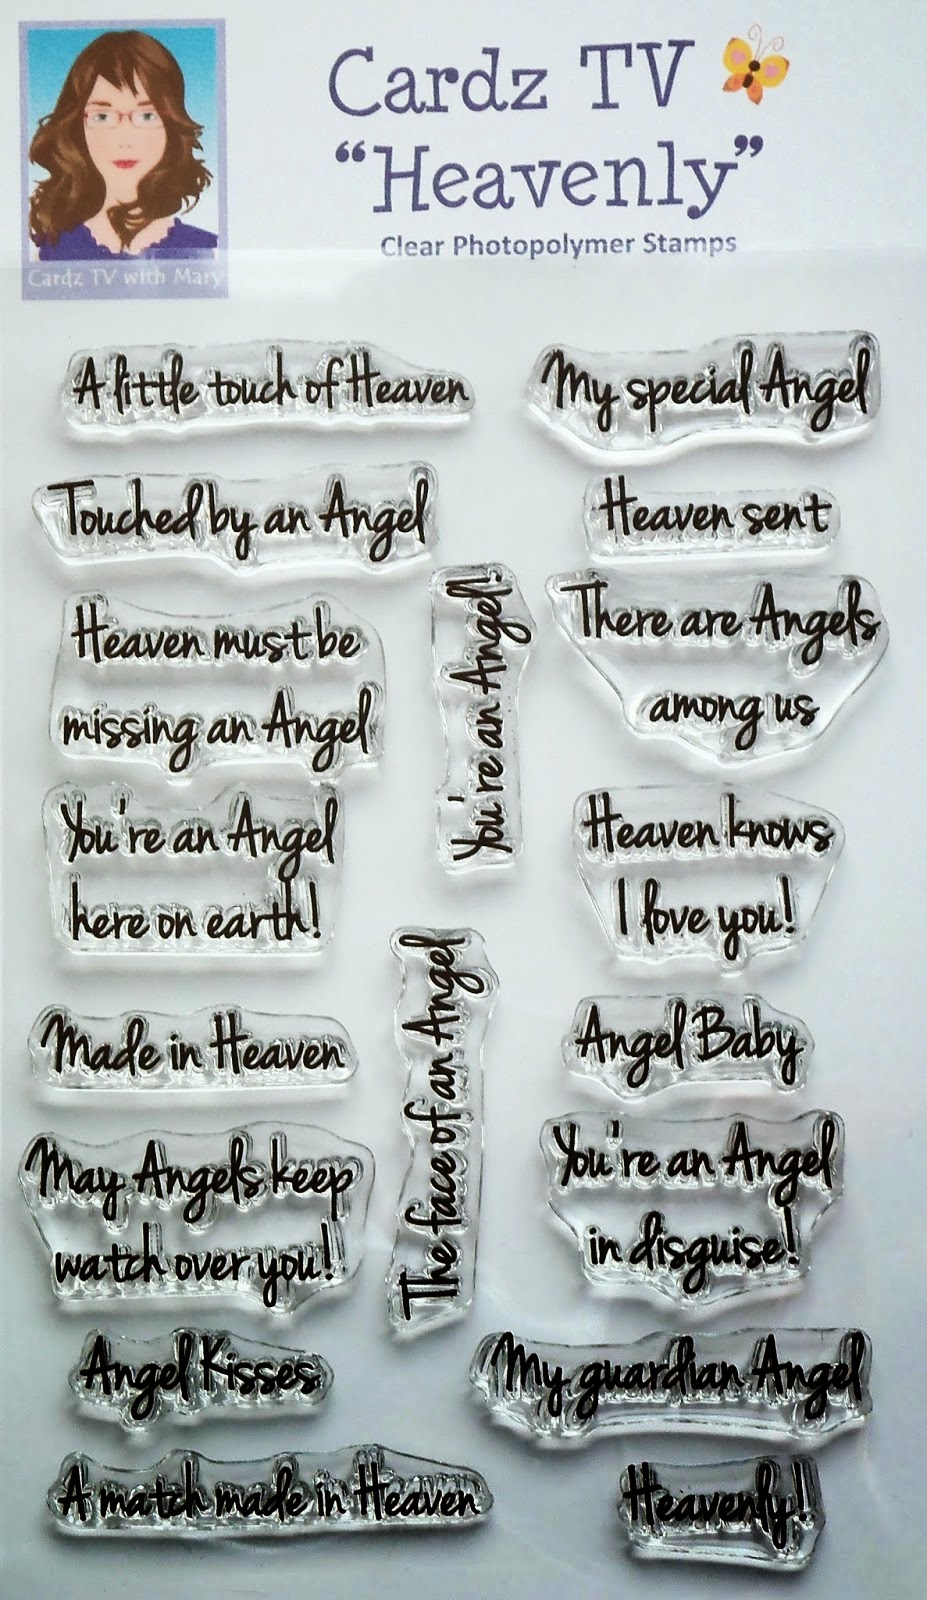 Cardz TV
“Heavenly”
Clear Photopolymer Stamps
Cardz TV with Mary
A little touch of Heaven
My special Angel
Touched by an Angel
Heaven sent
Heaven must be
missing an Angel
You're an Angel!
There are Angels
among us
You're an Angel
here on earth!
Heaven knows
I love you!
Made in Heaven
The face of an Angel
Angel Baby
May Angels keep
watch over you!
You're an Angel
in disguise!
Angel Kisses
My guardian Angel
A match made in Heaven
Heavenly!